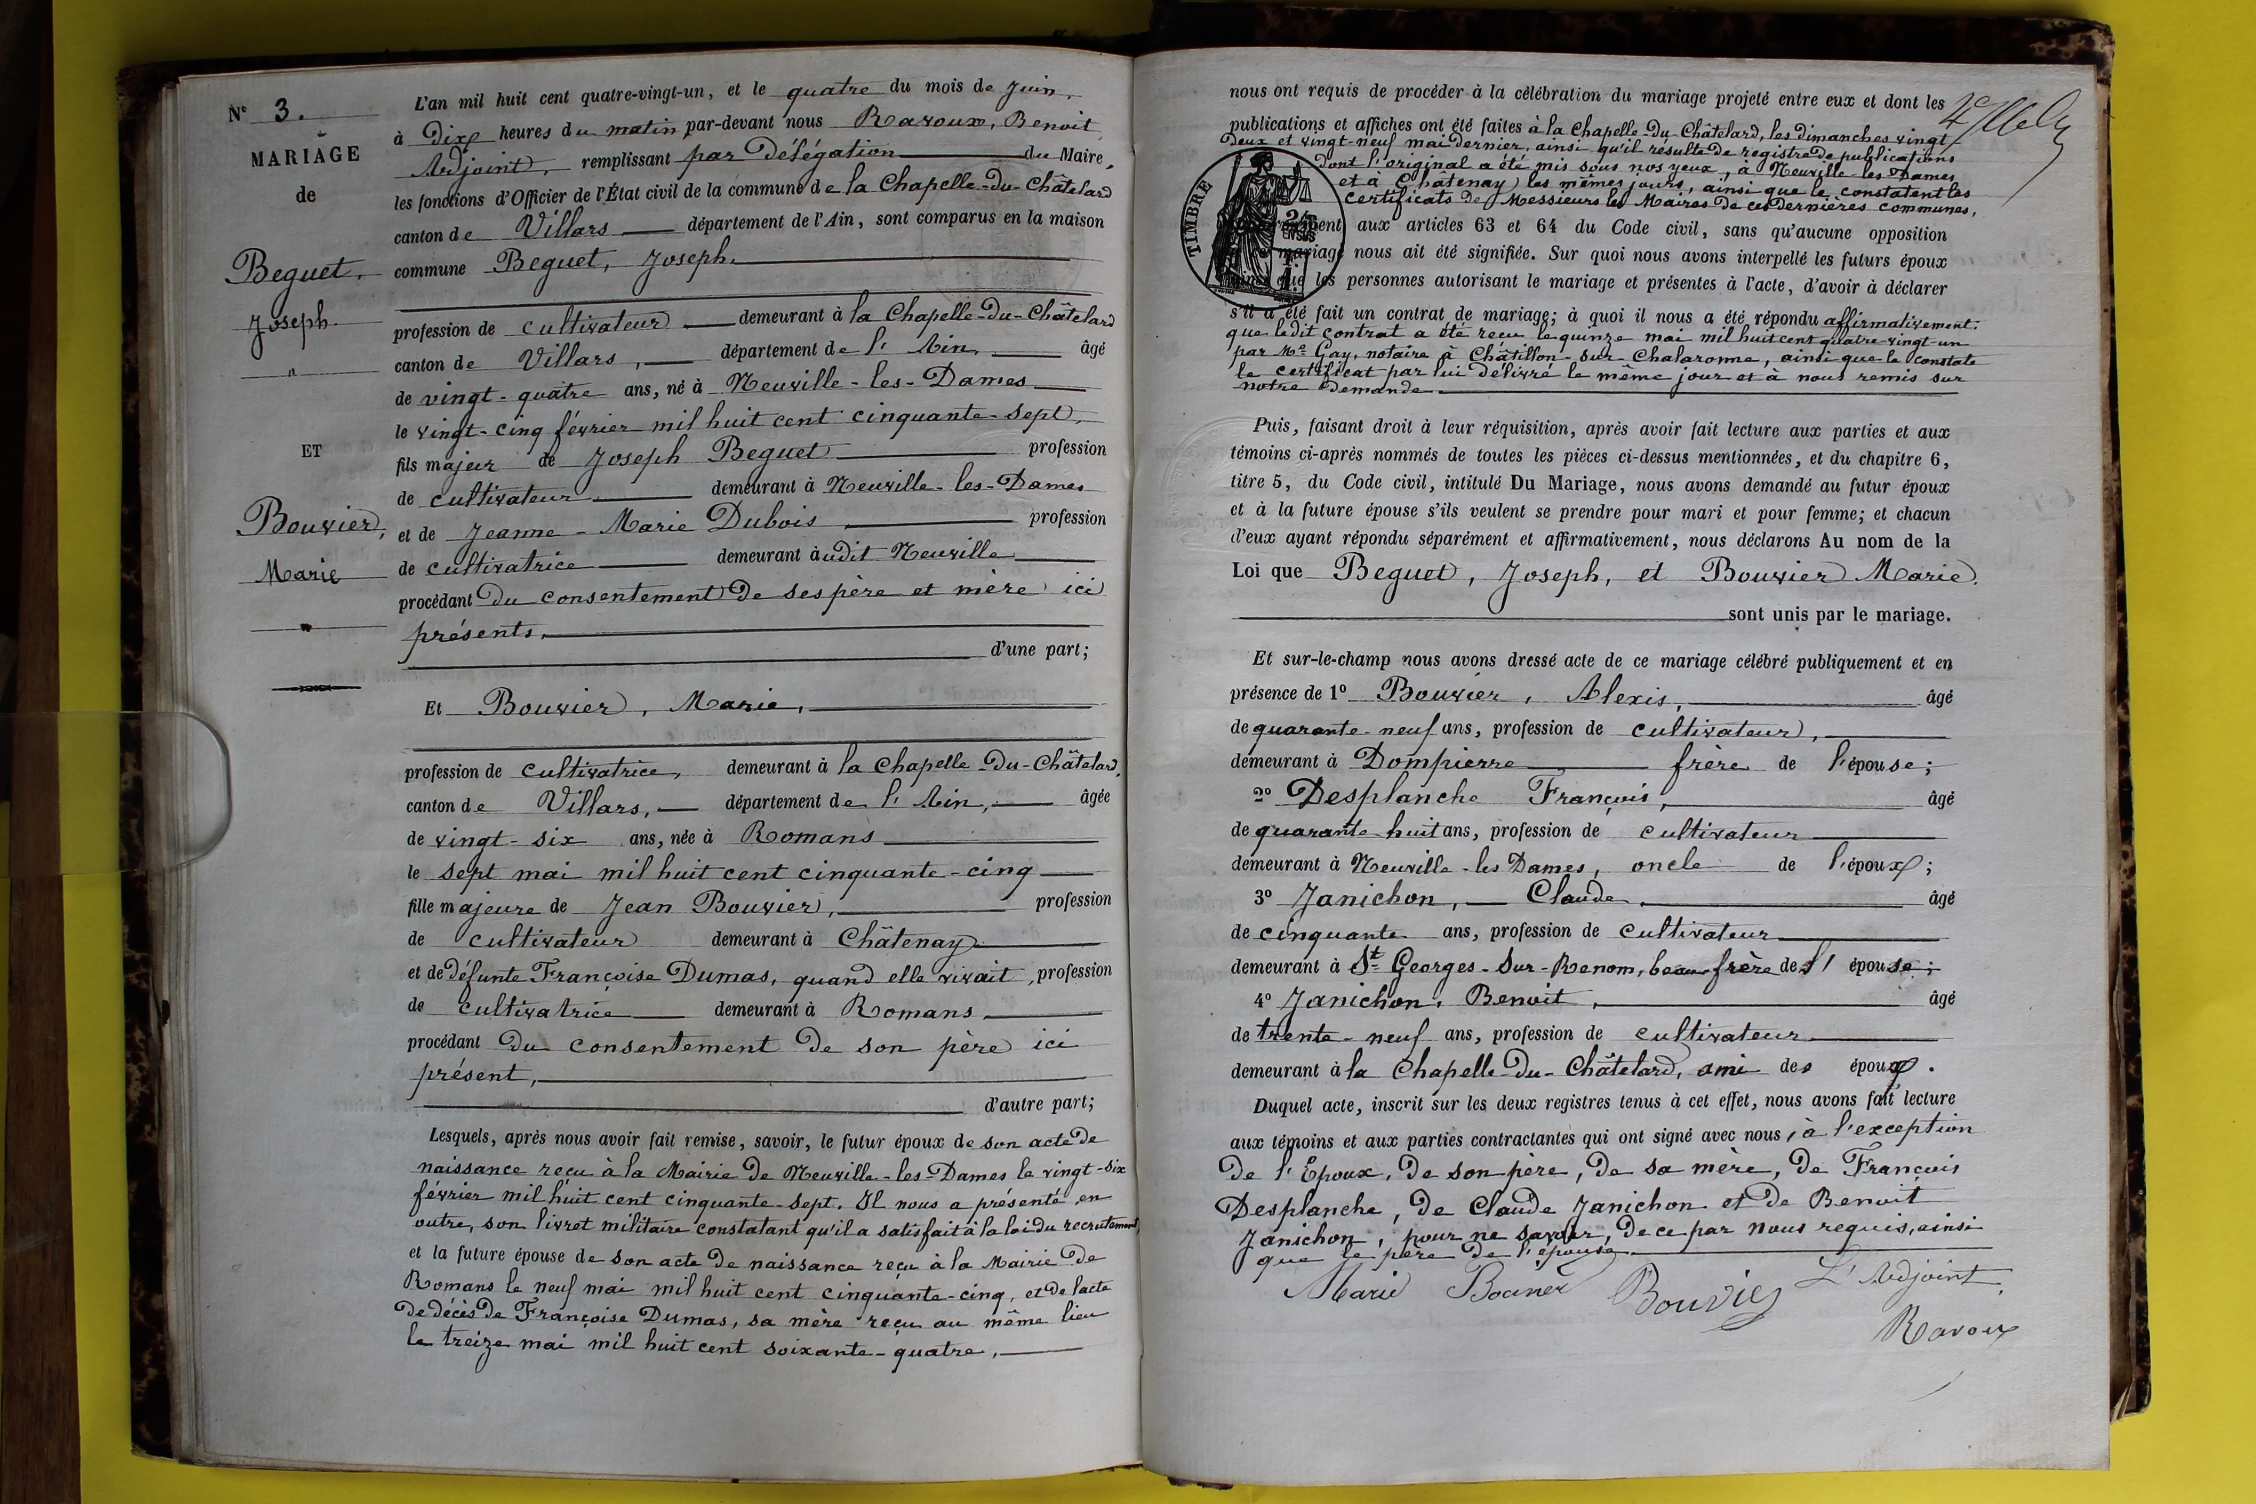 Nº 3.
MARIAGE
de
Beguet,
Joseph
"
ET
Bouvier,
Marie
"
L'an mil huit cent quatre-vingt-un, et le quatre du mois de Juin,
à dix heures du matin par-devant nous Ravoux, Benoit
Adjoint, remplissant par Délégation du Maire,
les fonctions d'Officier de l'État civil de la commune de la Chapelle-Du-Châtelard
canton de Villars département de l'Ain, sont comparus en la maison
commune Beguet, Joseph.
profession de cultivateur demeurant à la Chapelle-Du-Châtelard
canton de Villars, département de l'Ain, âgé
de vingt-quatre ans, né à Neuville-les-Dames
le vingt-cinq février mil huit cent cinquante-sept,
fils majeur de Joseph Beguet profession
de cultivateur demeurant à Neuville-les-Dames
et de Jeanne-Marie Dubois profession
de cultivatrice demeurant àudit Neuville
procédant Du consentement De ses père et mère ici
présents,
d'une part;
Et Bouvier, Marie,
profession de cultivatrice, demeurant à la Chapelle-Du-Châtelard,
canton de Villars, département de l'Ain, âgée
de vingt-six ans, née à Romans
le sept mai mil huit cent cinquante-cinq
fille majeure de Jean Bouvier, profession
de cultivateur demeurant à Châtenay
et de défunte Françoise Dumas, quand elle vivait, profession
de cultivatrice demeurant à Romans
procédant Du consentement De son père ici
présent,
d'autre part;
Lesquels, après nous avoir fait remise, savoir, le futur époux de son acte De
naissance reçu à la Mairie De Neuville-les-Dames le vingt-six
février mil huit cent cinquante-sept. Il nous a présenté en
outre, son livret militaire constatant qu'il a satisfait à la loi du recrutement
et la future épouse de son acte De naissance reçu à la Mairie De
Romans le neuf mai mil huit cent cinquante-cinq, et De l'acte
De décès De Françoise Dumas, sa mère reçu au même lieu
le treize mai mil huit cent soixante-quatre,
nous ont requis de procéder à la célébration du mariage projeté entre eux et dont les
publications et affiches ont été faites à la Chapelle-Du-Châtelard, les dimanches vingt
Deux et vingt-neuf mai Dernier, ainsi qu'il résulte De registre De publications
dont l'original a été mis sous nos yeux, à Neuville-les-Dames
et à Châtenay les mêmes jours, ainsi que le constatent les
certificats De Messieurs les Maires De ces Dernières communes,
TIMBRE
aux articles 63 et 64 du Code civil, sans qu'aucune opposition
mariage nous ait été signifiée. Sur quoi nous avons interpellé les futurs époux
que les personnes autorisant le mariage et présentes à l'acte, d'avoir à déclarer
s'il a été fait un contrat de mariage; à quoi il nous a été répondu affirmativement:
que ledit contrat a été reçu le quinze mai mil huit cent quatre-vingt-un
par Me Gay, notaire à Châtillon-sur-Chalaronne, ainsi que le constate
le certificat par lui Délivré le même jour et à nous remis sur
notre Demande
Puis, faisant droit à leur réquisition, après avoir fait lecture aux parties et aux
témoins ci-après nommés de toutes les pièces ci-dessus mentionnées, et du chapitre 6,
titre 5, du Code civil, intitulé Du Mariage, nous avons demandé au futur époux
et à la future épouse s'ils veulent se prendre pour mari et pour femme; et chacun
d'eux ayant répondu séparément et affirmativement, nous déclarons Au nom de la
Loi que Beguet, Joseph, et Bouvier Marie.
sont unis par le mariage.
Et sur-le-champ nous avons dressé acte de ce mariage célébré publiquement et en
présence de 1º Bouvier, Alexis, âgé
de quarante-neuf ans, profession de cultivateur,
demeurant à Dompierre frère de l'épouse;
2º Desplanche François, âgé
de quarante-huit ans, profession de cultivateur
demeurant à Neuville-les Dames, oncle de l'époux;
3º Janichon, Claude, âgé
de cinquante ans, profession de cultivateur
demeurant à St Georges-Sur-Renom, beau-frère de l'épouse;
4º Janichon, Benoit, âgé
de trente-neuf ans, profession de cultivateur
demeurant à la Chapelle-Du-Châtelard, ami des époux.
Duquel acte, inscrit sur les deux registres tenus à cet effet, nous avons fait lecture
aux témoins et aux parties contractantes qui ont signé avec nous, à l'exception
De l'Epoux, De son père, De sa mère, De François
Desplanche, De Claude Janichon et De Benoit
Janichon, pour ne savoir, De ce par nous requis, ainsi
que le père De l'épouse
Marie Bouvier Bouvier L'Adjoint
Ravoux